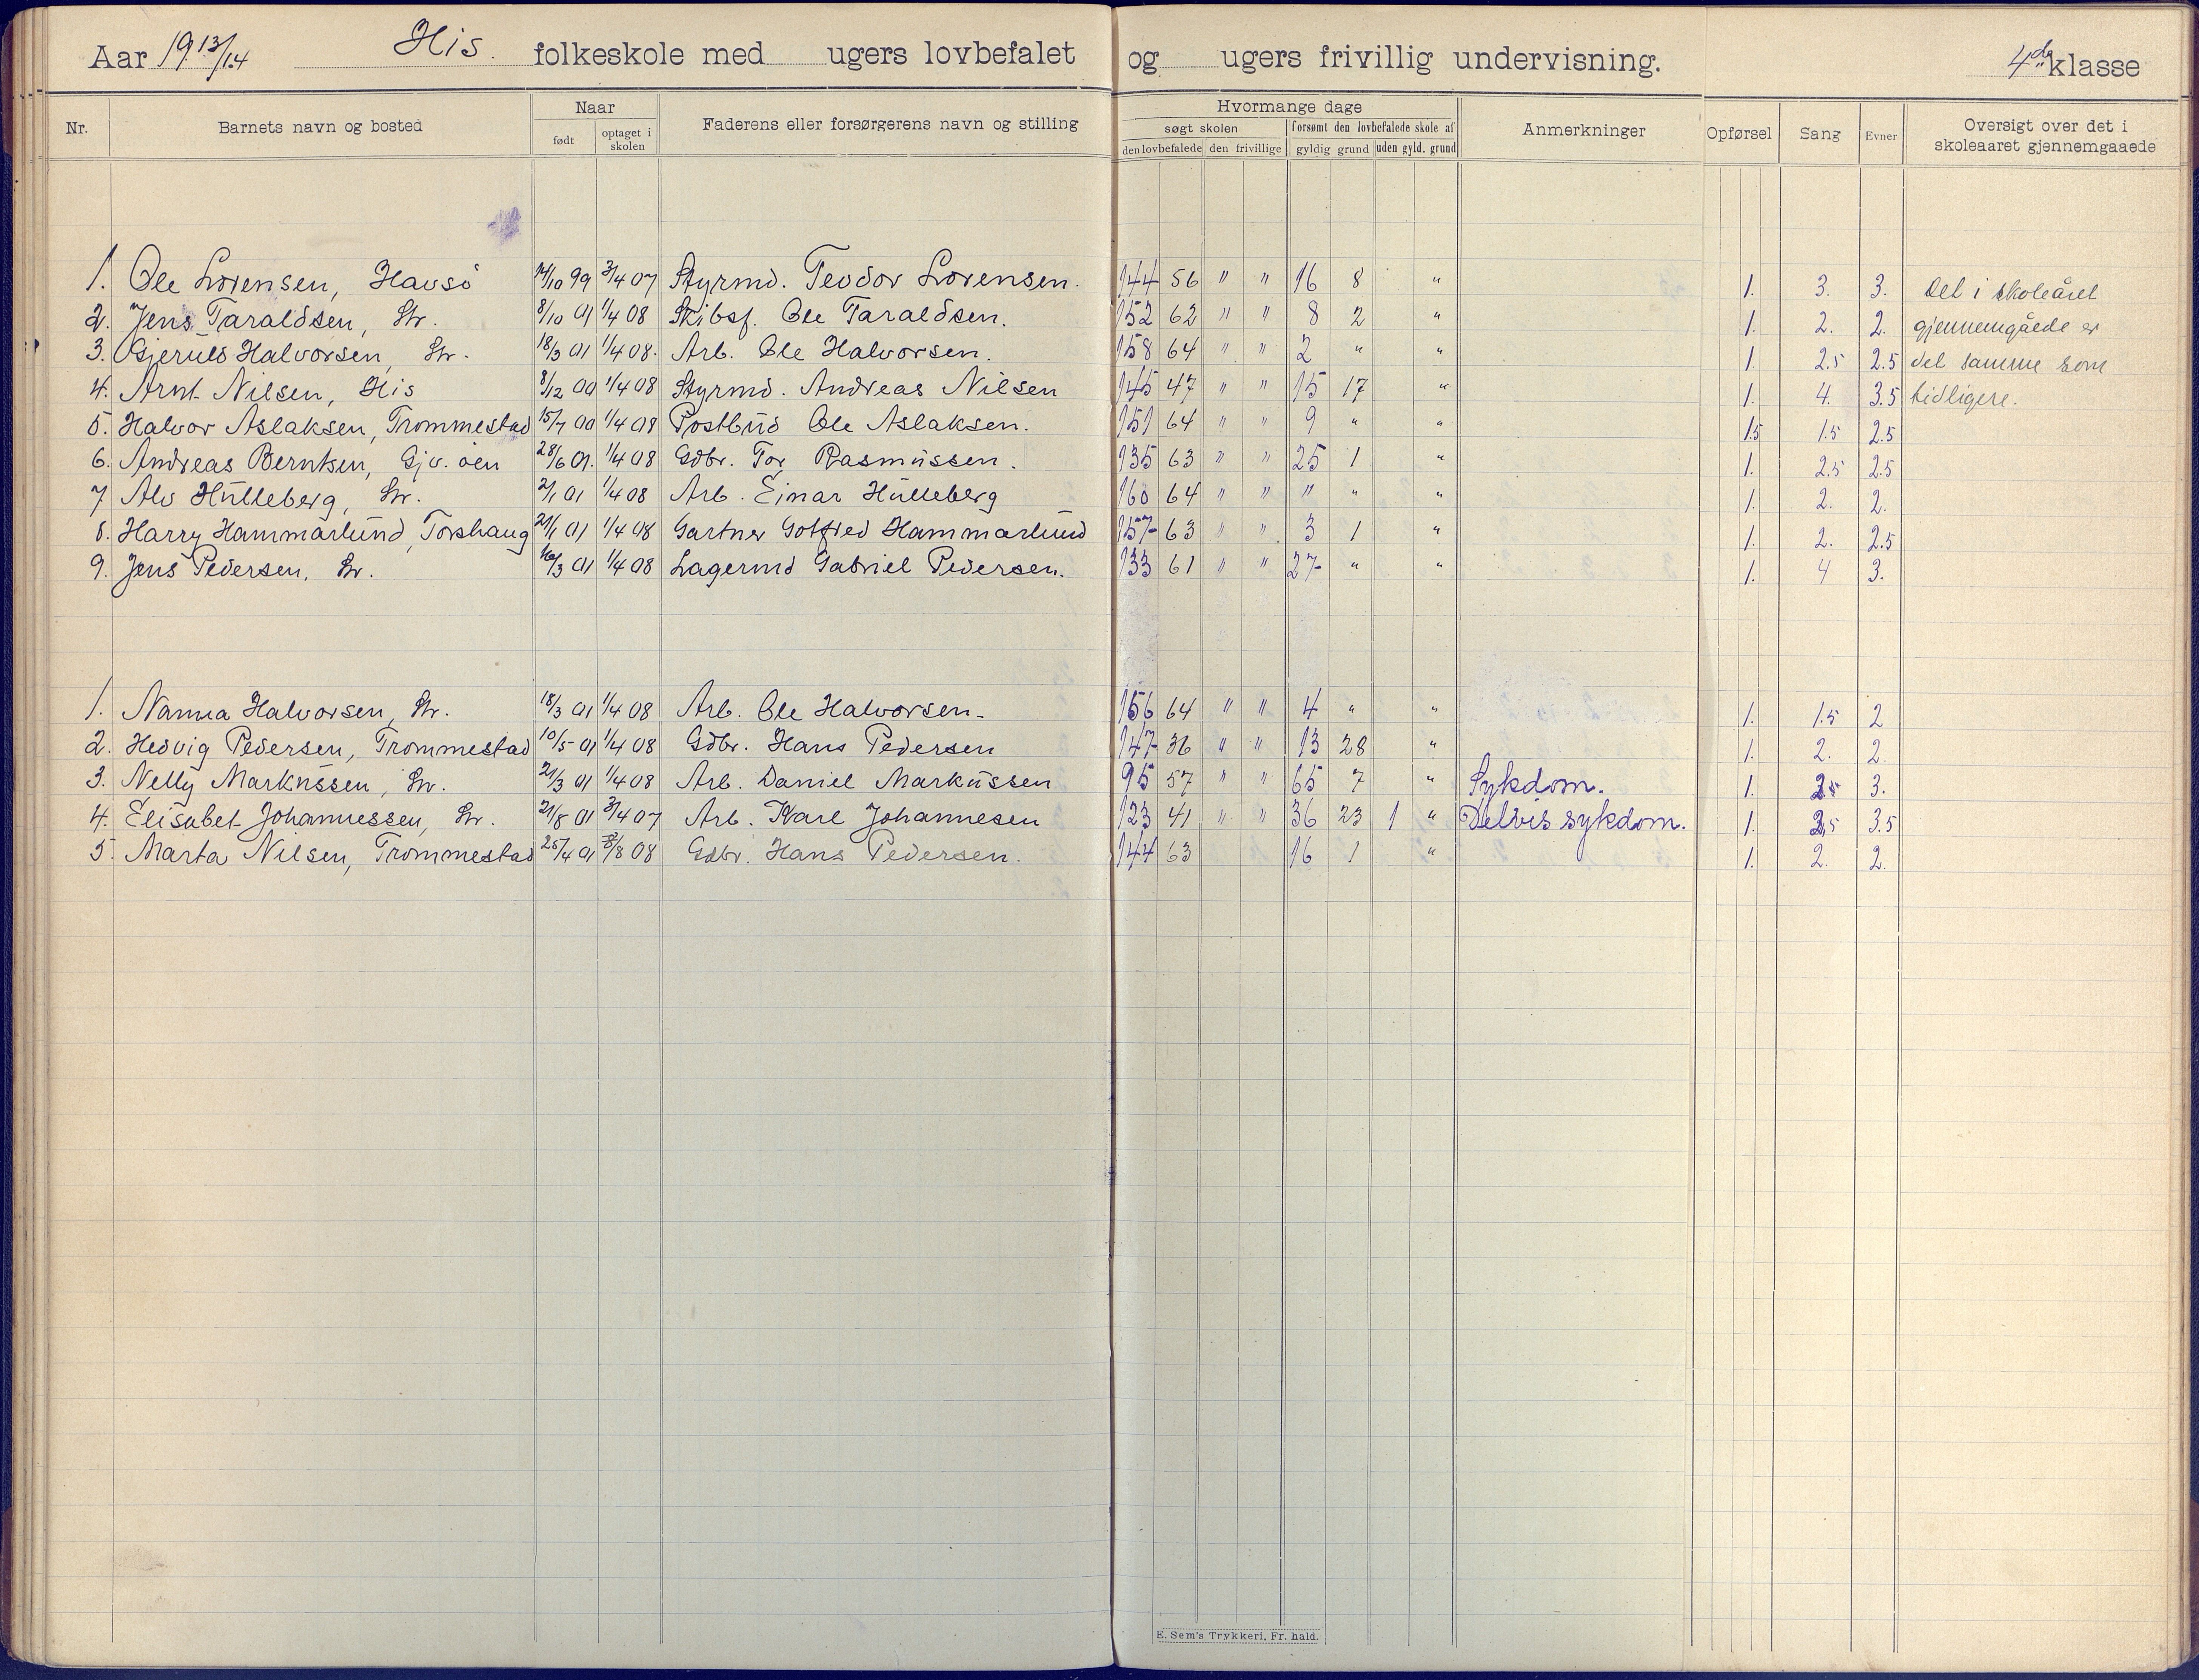 Aar 1913/14 His. folkeskole med ugers lovbefalet og ugers frivillig undervisning. 4de klasse
Nr. Barnets navn og bosted Naar født optaget i skolen Faderens eller forsørgerens navn og stilling Hvormange dage søgt skolen den lovbefalede den frivillige forsømt den lovbefalede skole af gyldig grund uden gyld. grund Anmerkninger Opførsel Sang Evner Oversigt over det i skoleaaret gjennemgaaede
1. Ole Lorensen, Havsö 14/10 99 3/4 07 Styrmd. Teodor Lorensen. 144 56 " " 16 8 " 1. 3. 3. Det i skoleåret
2. Jens Taraldsen, Str. 8/10 01 1/4 08 Skibsf. Ole Taraldsen. 152 62 " " 8 2 " 1. 2. 2. gjennemgåede er
3. Gjeruls Halvorsen, Str. 18/3 01 1/4 08. Arb. Ole Halvorsen. 158 64 " " 2 " " 1. 2.5 2.5 det samme som
4. Arnt Nilsen, His 8/12 00 1/4 08 Styrmd. Andreas Nilsen 145 47 " " 15 17 " 1. 4. 3.5 tidligere.
5. Halvor Aslaksen, Trommestad 15/7 00 1/4 08 Postbud Ole Aslaksen. 151 64 " " 9 " " 1.5 1.5 2.5
6. Andreas Berntsen, Gjv. öen 28/6 01. 1/4 08 Gdbr. Tor Rasmussen. 135 63 " " 25 1 " 1. 2.5 2.5
7 Alv Hulleberg, Str. 2/1 01 1/4 08 Arb. Einar Hulleberg 160 64 " " " " " 1. 2. 2.
8. Harry Hammarlund, Torshaug 21/1 01 1/4 08 Gartner Gotfred Hammarlund 157 63 " " 3 1 " 1. 2. 2.5
9. Jens Pedersen, Str. 16/3 01 1/4 08 Lagermd Gabriel Pedersen. 133 61 " " 27 " " 1. 4 3.
1. Nanna Halvorsen, Str. 18/3 01 1/4 08 Arb. Ole Halvorsen. 156 64 " " 4 " " 1. 1.5 2
2. Hedvig Pedersen, Trommestad 10/5 01 1/4 08 Gdbr. Hans Pedersen 147 36 " " 13 28 " 1. 2. 2.
3. Nelly Markussen, Str. 21/3 01 1/4 08 Arb. Daniel Markussen 95 57 " " 65 7 " Sykdom. 1. 2.5 3.
4. Elisabet Johannessen, Str. 21/8 01 3/4 07 Arb. Karl Johannesen 123 41 " " 36 23 1 " Delvis sykdom. 1. 2.5 3.5
5. Marta Nilsen, Trommestad 25/4 01 /8 08 Gdbr. Hans Pedersen. 144 63 16 1 " 1. 2. 2.
E. Sem's Trykkeri, Fr. hald.